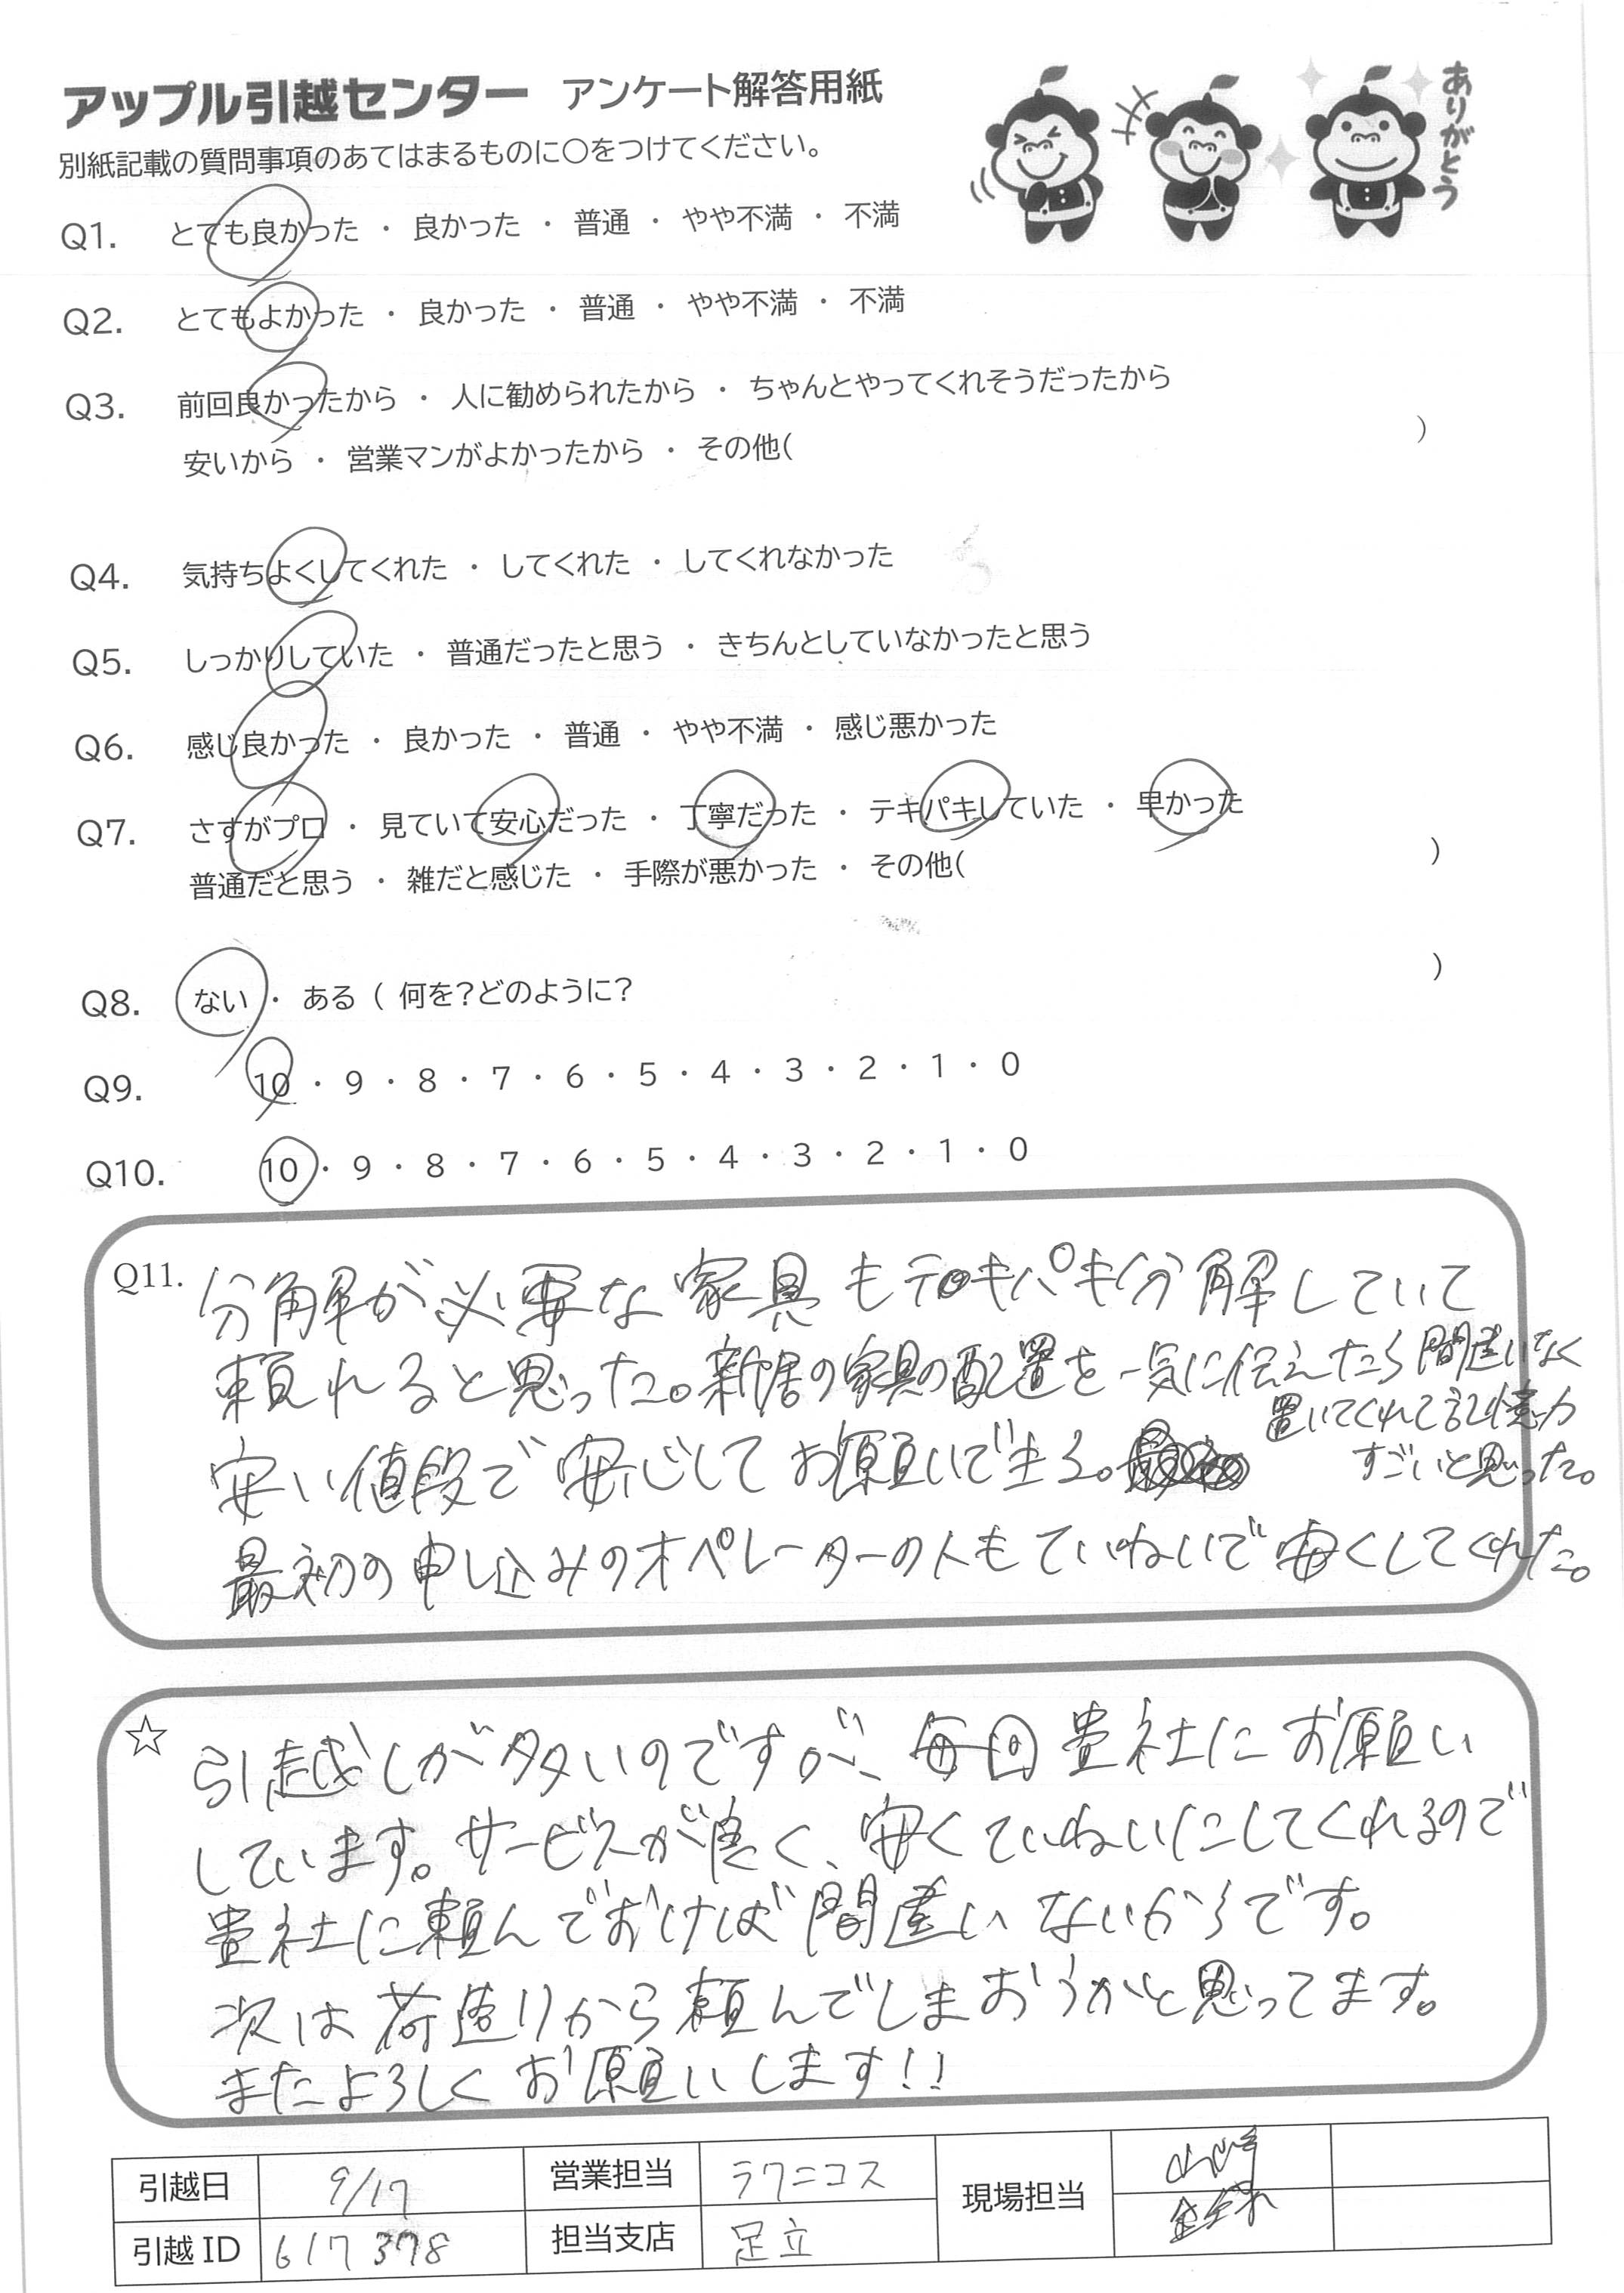 アップル引越センター アンケート解答用紙
ありがとう
別紙記載の質問事項のあてはまるものに○をつけてください。
Q1. とても良かった ・ 良かった ・ 普通 ・ やや不満 ・ 不満
Q2. とてもよかった ・ 良かった ・ 普通 ・ やや不満 ・ 不満
Q3. 前回良かったから ・ 人に勧められたから ・ ちゃんとやってくれそうだったから
安いから ・ 営業マンがよかったから ・ その他( )
Q4. 気持ちよくしてくれた ・ してくれた ・ してくれなかった
Q5. しっかりしていた ・ 普通だったと思う ・ きちんとしていなかったと思う
Q6. 感じ良かった ・ 良かった ・ 普通 ・ やや不満 ・ 感じ悪かった
Q7. さすがプロ ・ 見ていて安心だった ・ 丁寧だった ・ テキパキしていた ・ 早かった
普通だと思う ・ 雑だと感じた ・ 手際が悪かった ・ その他( )
Q8. ない ・ ある ( 何を？どのように？ )
Q9. 10 ・ 9 ・ 8 ・ 7 ・ 6 ・ 5 ・ 4 ・ 3 ・ 2 ・ 1 ・ 0
Q10. 10 ・ 9 ・ 8 ・ 7 ・ 6 ・ 5 ・ 4 ・ 3 ・ 2 ・ 1 ・ 0
Q11. 分解が必要な家具もテキパキ分解していて
頼れると思った。新居の家具の配置を一気に伝えたら間違いなく
置いてくれて記憶力
すごいと思った。
安い値段で安心してお願いできる。
最初の申し込みのオペレーターの人もていねいで安くしてくれた。
☆ 引越しが多いのですが、毎回貴社にお願い
しています。サービスが良く、安くていねいにしてくれるので
貴社に頼んでおけば間違いないからです。
次は荷造りから頼んでしまおうかと思ってます。
またよろしくお願いします!!
引越日 9/17 営業担当 ラクニコス 現場担当 山崎
引越ID 617378 担当支店 足立